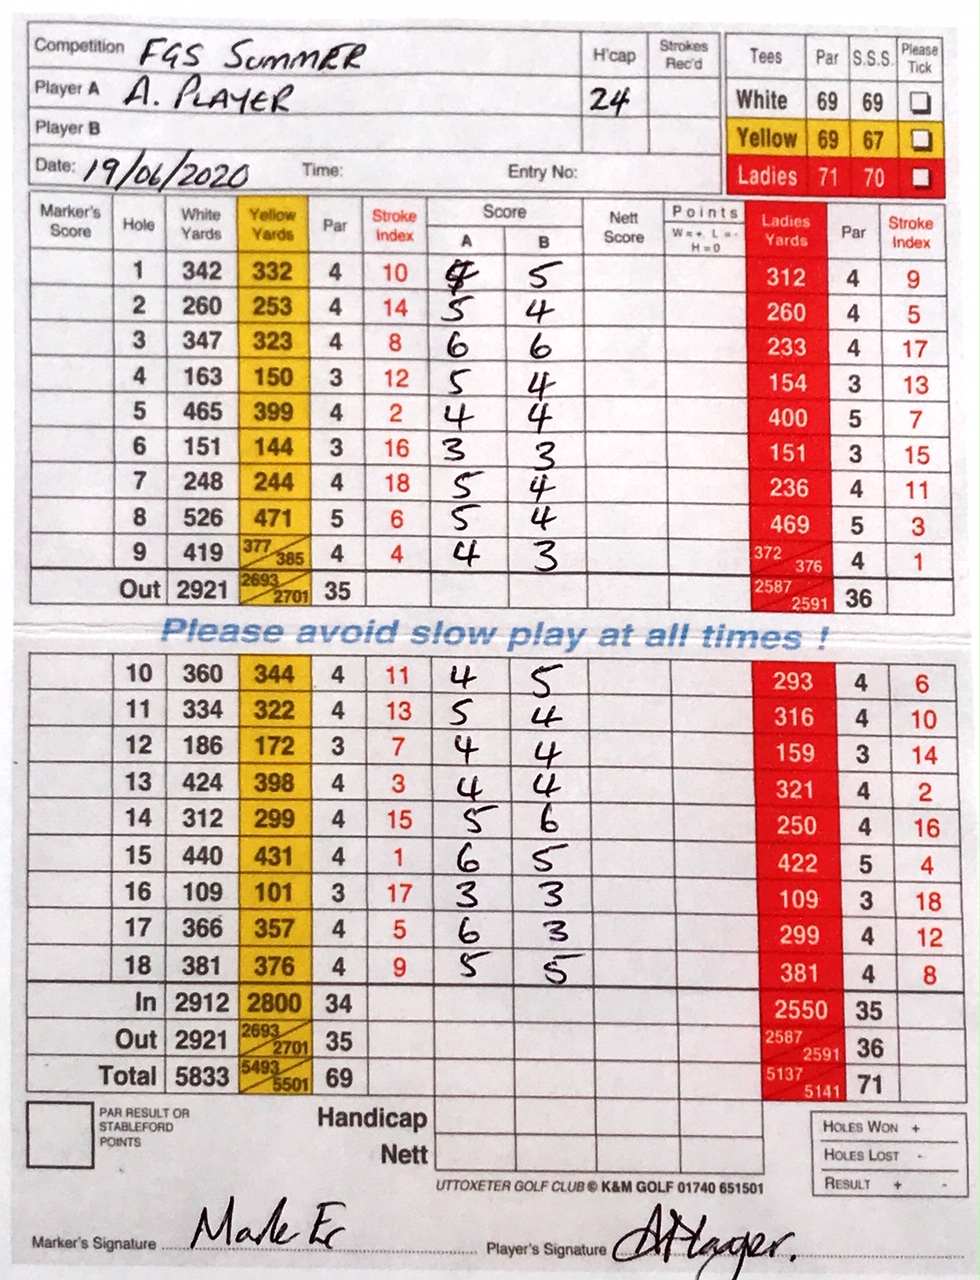 Competition FGS SUMMER H'cap Strokes Rec'd Tees Par S.S.S. Please Tick
Player A A. PLAYER 24 White 69 69
Player B Yellow 69 67
Date: 19/06/2020 Time: Entry No: Ladies 71 70
Marker's Score Hole White Yards Yellow Yards Par Stroke Index Score A B Nett Score Points W = +, L = - H = O Ladies Yards Par Stroke Index
1 342 332 4 10 5 312 4 9
2 260 253 4 14 5 4 260 4 5
3 347 323 4 8 6 6 233 4 17
4 163 150 3 12 5 4 154 3 13
5 465 399 4 2 4 4 400 5 7
6 151 144 3 16 3 3 151 3 15
7 248 244 4 18 5 4 236 4 11
8 526 471 5 6 5 4 469 5 3
9 419 377 385 4 4 4 3 372 376 4 1
Out 2921 2693 2701 35 2587 2591 36
Please avoid slow play at all times !
10 360 344 4 11 4 5 293 4 6
11 334 322 4 13 5 4 316 4 10
12 186 172 3 7 4 4 159 3 14
13 424 398 4 3 4 4 321 4 2
14 312 299 4 15 5 6 250 4 16
15 440 431 4 1 6 5 422 5 4
16 109 101 3 17 3 3 109 3 18
17 366 357 4 5 6 3 299 4 12
18 381 376 4 9 5 5 381 4 8
In 2912 2800 34 2550 35
Out 2921 2693 2701 35 2587 2591 36
Total 5833 5493 5501 69 5137 5141 71
PAR RESULT OR STABLEFORD POINTS Handicap HOLES WON +
Nett HOLES LOST -
RESULT + -
UTTOXETER GOLF CLUB © K&M GOLF 01740 651501
Marker's Signature Mark Er Player's Signature A Player.